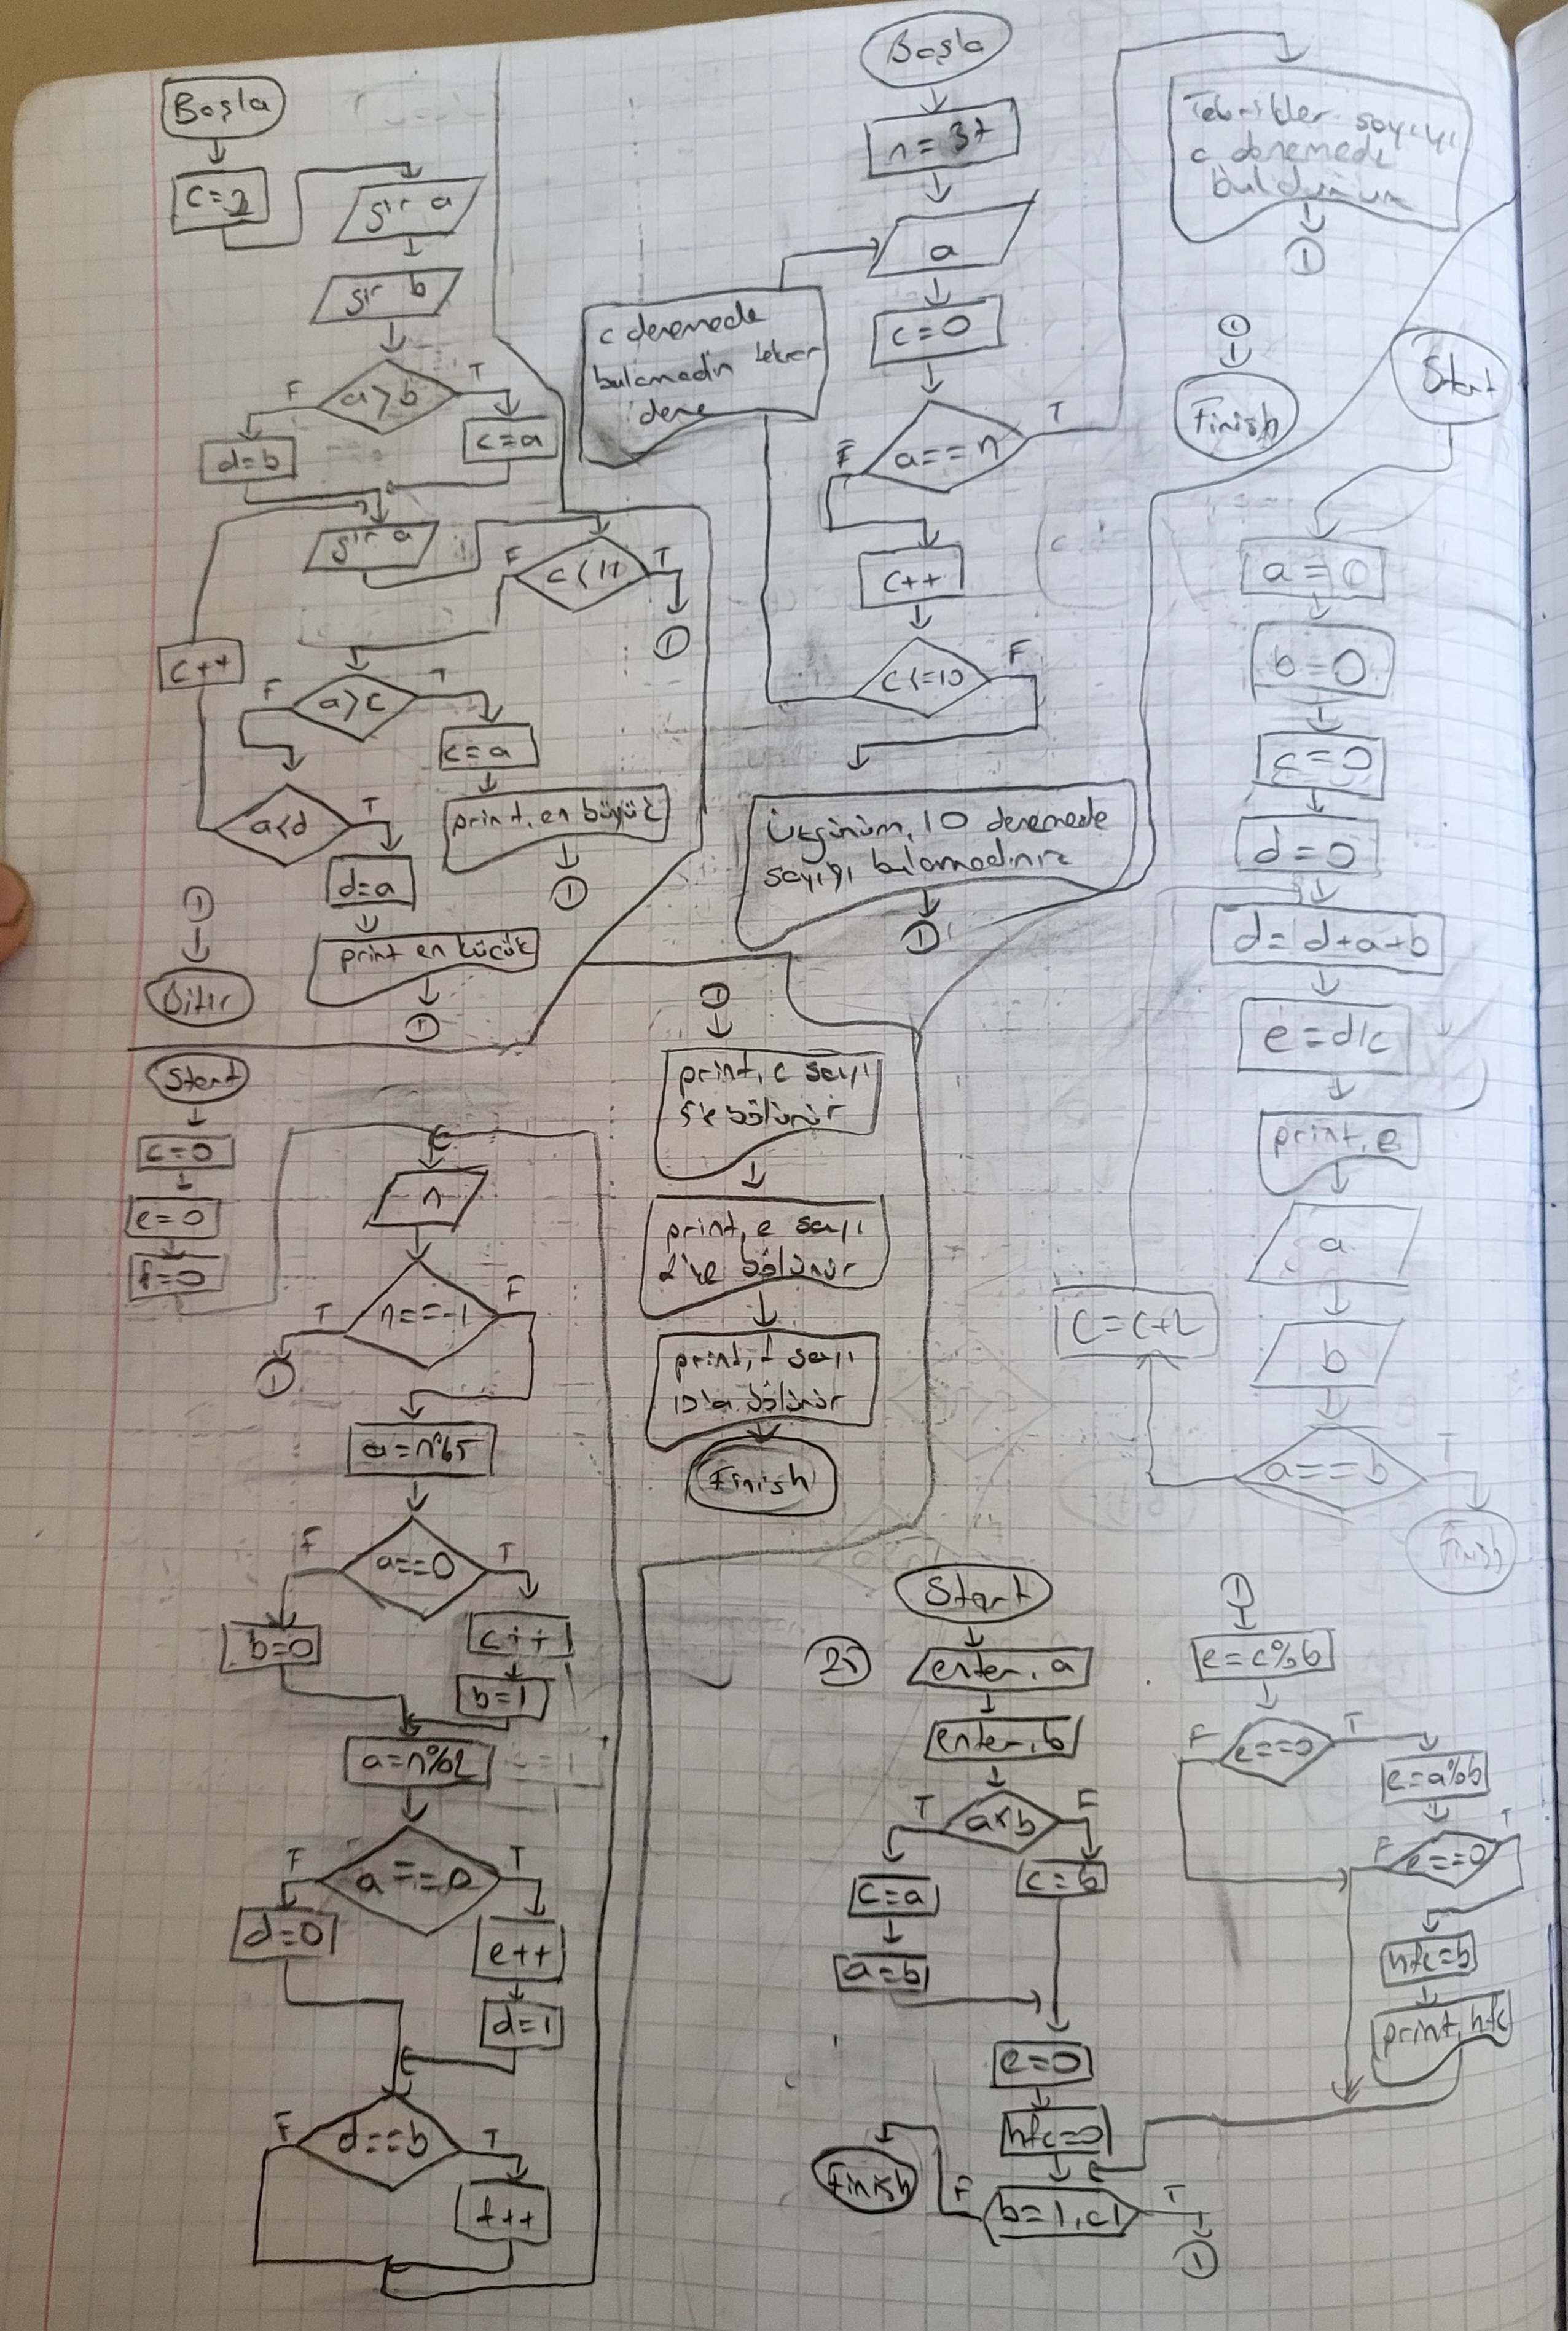 Başla
c=2
gir a
gir b
a>b
F
T
d=b
c=a
gir a
c<17
F
T
1
c++
a>c
F
T
c=a
print, en büyük
1
a<d
T
d=a
print en küçük
1
1
Bitir
Başla
n=37
a
c=0
a==n
F
T
c++
c<=10
F
c denemede
bulamadın tekrar
dene
Üzgünüm, 10 denemede
sayıyı bulamadınız
1
Tebrikler sayıyı
c denemede
buldunuz
1
1
Finish
Start
a=0
b=0
c=0
d=0
d=d+a+b
e=d/c
print, e
a
b
a==b
T
c=c+2
Finish
Start
c=0
e=0
f=0
n
n==-1
T
F
1
a=n%5
a==0
F
T
b=0
c++
b=1
a=n%2
a==0
F
T
d=0
e++
d=1
d==b
F
T
f++
1
print, c sayı
5'e bölünür
print, e sayı
2'ye bölünür
print, f sayı
10'a bölünür
Finish
25
Start
enter, a
enter, b
a<b
T
F
c=a
c=b
a=b
e=0
hfc=0
b=1, c, 1
F
T
Finish
1
1
e=c%b
e==0
F
T
e=a%b
e==0
F
T
hfc=b
print, hfc